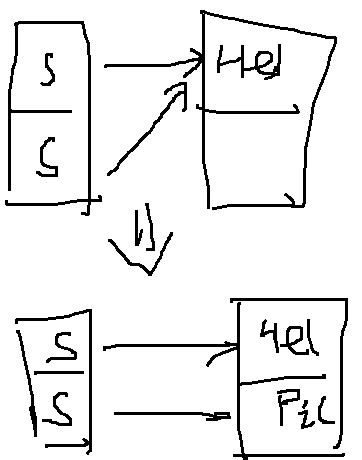 S Hel
S
S Hel
S Pic